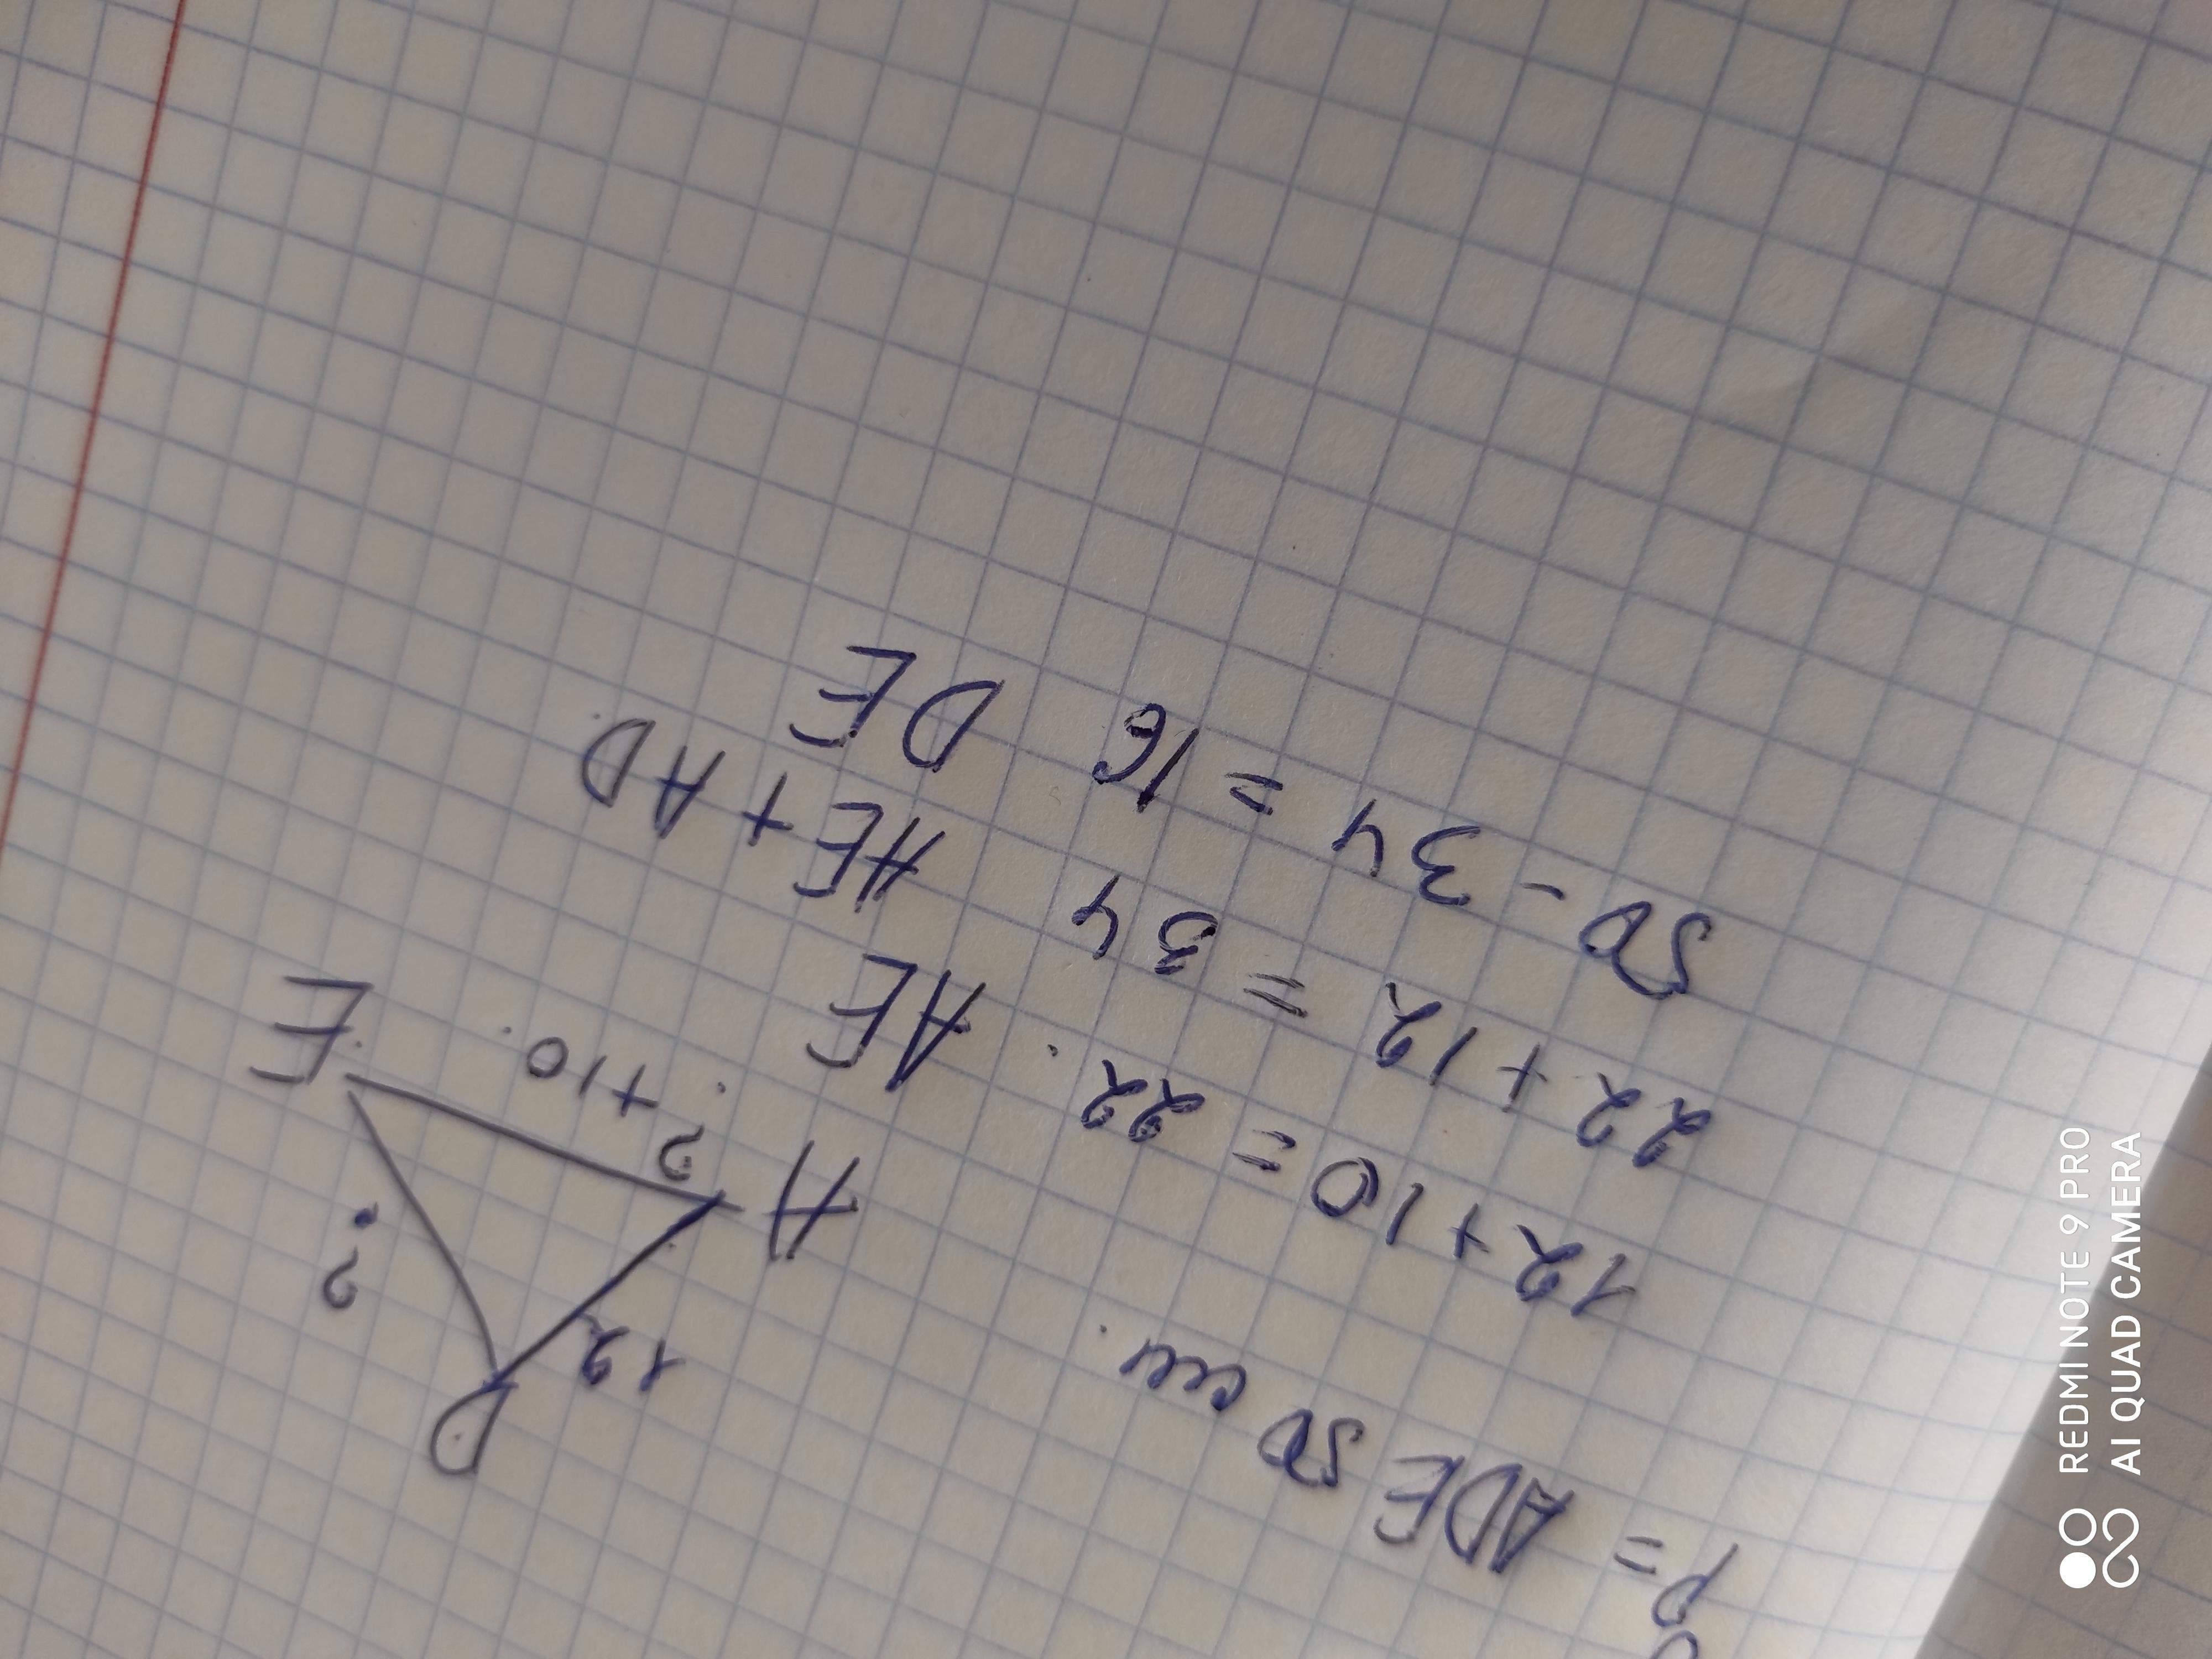 P = ADE 50 см.
12+10 = 22. AE
22+12 = 34 AE+AD
50 - 34 = 16 DE
D
12
?
A
? +10
E
REDMI NOTE 9 PRO
AI QUAD CAMERA